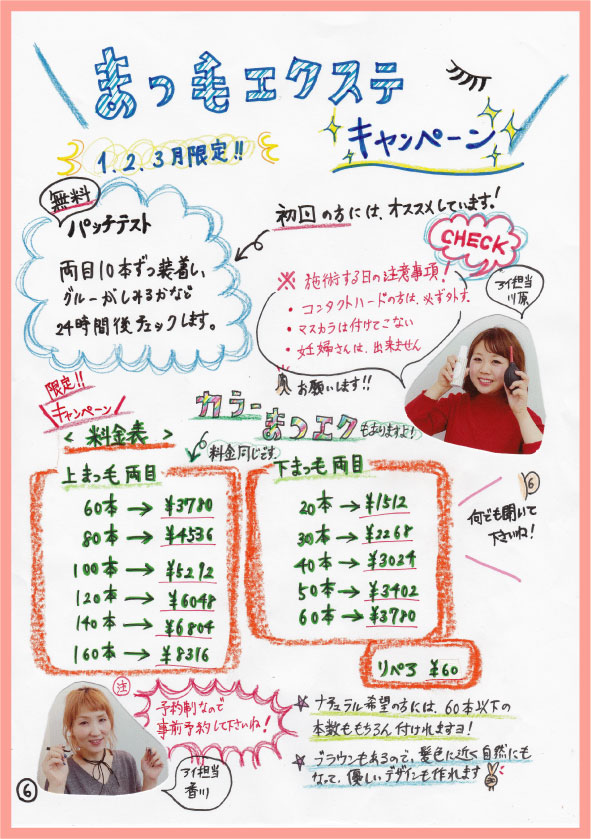 まつ毛エクステ
キャンペーン
1.2.3月限定!!
無料
パッチテスト
両目10本ずつ装着し、
グルーがしみるかなど
24時間後チェックします。
初回の方には、オススメしています!
CHECK
※ 施術する日の注意事項!
・コンタクトハードの方は、必ず外す。
・マスカラは付けてこない
・妊婦さんは、出来ません
お願いします!!
アイ担当
川原
限定!!
キャンペーン
<料金表>
カラーまつエクもありますよ!
料金同じです。
上まつ毛 両目
60本→¥3780
80本→¥4536
100本→¥5292
120本→¥6048
140本→¥6804
160本→¥8316
下まつ毛 両目
20本→¥1512
30本→¥2268
40本→¥3024
50本→¥3402
60本→¥3780
リペア ¥60
何でも聞いて
下さいね!
注
予約制なので
事前予約して下さいね!
アイ担当
香川
☆ナチュラル希望の方には、60本以下の
本数ももちろん付けれますヨ!
☆ブラウンもあるので、髪色に近く自然にも
なって、優しいデザインも作れます
6